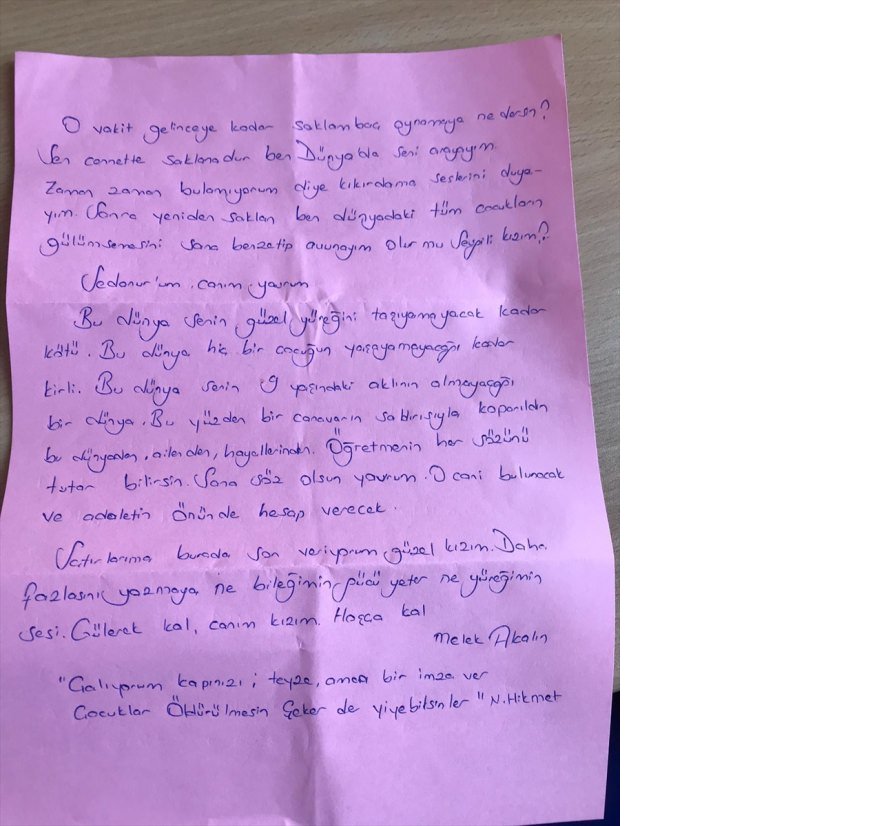 O vakit gelinceye kadar saklambaç oynamaya ne dersin?
Sen cennette saklanadur ben Dünya'da seni arayayım.
Zaman zaman bulamıyorum diye kıkırdama seslerini duya-
yım. Sonra yeniden saklan ben dünyadaki tüm çocukların
gülümsemesini sana benzetip avunayım olur mu Sevgili kızım?
Sedanur'um, canım yavrum
Bu dünya senin güzel yüreğini taşıyamayacak kadar
kötü. Bu dünya hiç bir çocuğun yaşayamayacağı kadar
kirli. Bu dünya senin 9 yaşındaki aklının almayacağı
bir dünya. Bu yüzden bir canavarın saldırısıyla koparıldın
bu dünyadan, ailenden, hayallerinden. Öğretmenin her sözünü
tutar bilirsin. Sana söz olsun yavrum. O cani bulunacak
ve adaletin önünde hesap verecek.
Satırlarıma burada son veriyorum güzel kızım. Daha
fazlasını yazmaya ne bileğimin gücü yeter ne yüreğimin
sesi. Gülerek kal, canım kızım. Hoşça kal
Melek Akalın
"Çalıyorum kapınızı; teyze, amca bir imza ver
Çocuklar Öldürülmesin Şeker de yiyebilsinler" N.Hikmet